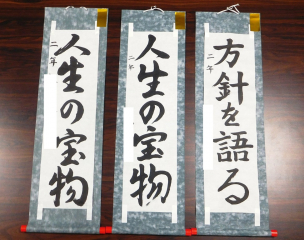 方針を語る
二年
人生の宝物
二年
人生の宝物
二年